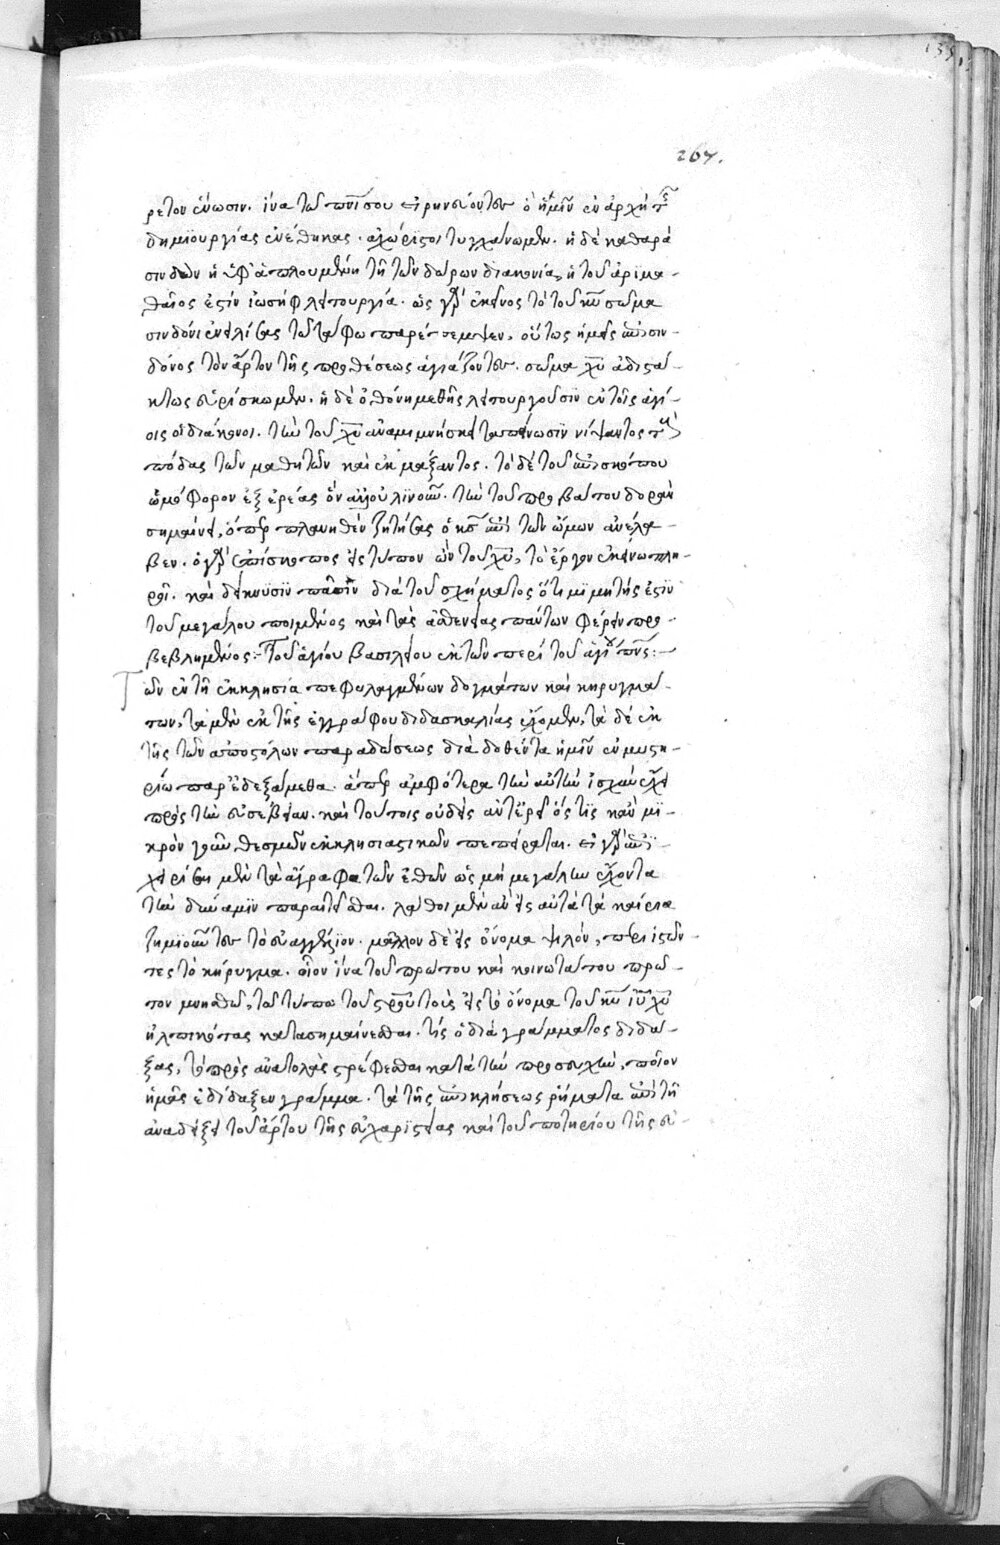 139
267.
ρετον ἕνωσιν. ἵνα τῶ πνϊ σου εἰρηνεύοντες ὃ ἡμῖν ἐν ἀρχῆ τῆς
δημϊουργίας ἐνέθηκας. ἀχώρϊστοι τυγχάνωμεν. ἡ δὲ καθαρά
σινδὼν ἡ ἐφαπλουμένη τῆ τῶν δώρων διακονία, ἡ τοῦ ἀρϊμα-
θαῖος ἐστὶν ἰωσὴφ λειτουργία. ὡς γὰρ ἐκεῖνος τὸ τοῦ κυ σῶμα
σινδόνι ἐνειλίσας τῶ τάφω παρέπεμψεν, οὕτως ἡμεῖς ἐπὶ σιν-
δόνος τὸν ἄρτον τῆς προθέσεως ἁγιάζοντες. σῶμα χυ ἀδιστά-
κτως εὑρίσκωμεν. ἡ δὲ ὀθόνη μεθῆς λειτουργοῦσϊν ἐν τοῖς ἁγί-
οις οἱ διάκονοι. τὴν τοῦ χυ ἀναμιμνήσκει ταπείνωσϊν νίψαντος τοὺς
πόδας τῶν μαθητῶν καὶ ἐκμάξαντος. τὸ δὲ τοῦ ἐπισκόπου
ὠμόφορον ἐξ ἐρέας ὂν ἀλλ' οὐ λίνου. τὴν τοῦ προβάτου δορὰν
σημαίνει, ὅπερ πλανηθὲν ζητήσας ὁ κς ἐπὶ τῶν ὤμων ἀνέλα-
βεν. ὁ γὰρ ἐπίσκοπος εἰς τύπον ὢν τοῦ χυ, τὸ ἔργον ἐκείνω πλη-
ροῖ. καὶ δεικνύσϊν πᾶσϊν διὰ τοῦ σχήματος ὅτι μϊμητής ἐστϊν
τοῦ μεγάλου ποιμένος καὶ τὰς ἀσθενείας πάντων φέρειν προ-
βεβλημένος:- Τοῦ ἁγίου βασιλείου ἐκ τῶν περὶ τοῦ ἁγίου πνς:-
Τῶν ἐν τῆ ἐκκλησία πεφυλαγμένων δογμάτων καὶ κηρυγμά-
των, τὰ μὲν ἐκ τῆς ἐγγράφου διδασκαλίας ἔχομεν, τὰ δὲ ἐκ
τῆς τῶν ἀποστόλων παραδόσεως διαδοθέντα ἡμῖν ἐν μυστη-
ρίω παρεδεξάμεθα. ἅπερ ἀμφότερα τὴν αὐτὴν ἰσχὺν ἔχει
πρὸς τὴν εὐσέβειαν. καὶ τούτοις οὐδεὶς ἀντερεῖ ὅς τις κἂν μϊ-
κρὸν γοῦν θεσμῶν ἐκκλησιαστικῶν πεπείραται. εἰ γὰρ ἐπϊ-
χειρήσαι μὲν τὰ ἄγραφα τῶν ἐθῶν ὡς μὴ μεγάλην ἔχοντα
τὴν δύναμϊν παραιτεῖσθαι. λάθοιμεν ἂν εἰς αὐτὰ τὰ καίρια
ζημϊοῦντες τὸ εὐαγγέλϊον. μᾶλλον δὲ εἰς ὄνομα ψιλόν, περιϊστῶν-
τες τὸ κήρυγμα. οἷον ἵνα τοῦ πρώτου καὶ κοινωτάτου πρῶ-
τον μνησθῶ, τῶ τύπω τοῦ σταυροῦ τοὺς εἰς τὸ ὄνομα τοῦ κυ ιυ χυ
ἠλπικότας κατασημαίνεσθαι. τίς ὁ διὰ γράμματος διδά-
ξας, τὸ πρὸς ἀνατολὰς στρέφεσθαι κατὰ τὴν προσευχὴν, ποῖον
ἡμᾶς ἐδίδαξεν γράμμα. τὰ τῆς ἐπικλήσεως ῥήματα ἐπὶ τῆ
ἀναδείξει τοῦ ἄρτου τῆς εὐχαρϊστίας καὶ τοῦ ποτηρίου τῆς εὐ-